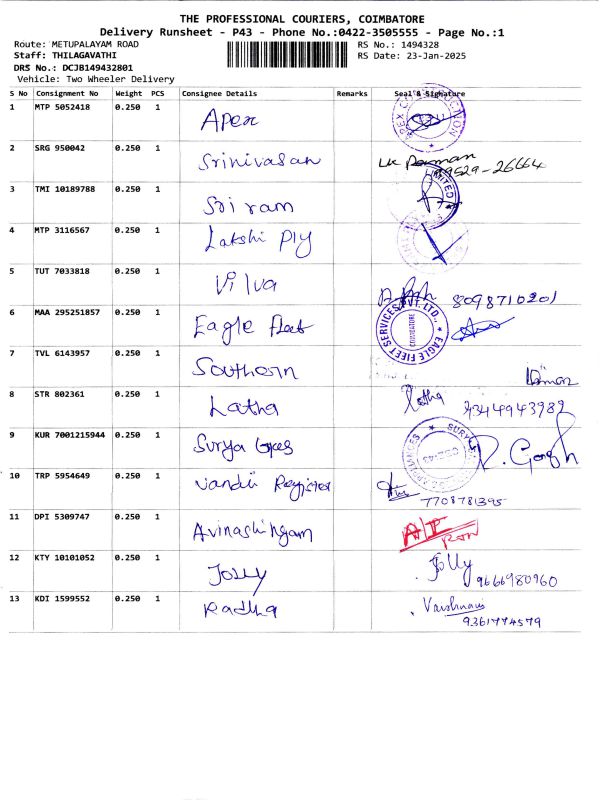 THE PROFESSIONAL COURIERS, COIMBATORE
Delivery Runsheet - P43 - Phone No.:0422-3505555 - Page No.:1
Route: METUPALAYAM ROAD RS No.: 1494328
Staff: THILAGAVATHI RS Date: 23-Jan-2025
DRS No.: DCJB149432801
Vehicle: Two Wheeler Delivery
S No Consignment No Weight PCS Consignee Details Remarks Seal & Signature
1 MTP 5052418 0.250 1 Apex
2 SRG 950042 0.250 1 Srinivasan
3 TMI 10189788 0.250 1 Sri ram
4 MTP 3116567 0.250 1 Lakshi Ply
5 TUT 7033818 0.250 1 Vilva 8098710201
6 MAA 295251857 0.250 1 Eagle fleet EAGLE FLEET SERVICES PVT. LTD., COIMBATORE
7 TVL 6143957 0.250 1 Southern
8 STR 802361 0.250 1 Latha Latha
9 KUR 7001215944 0.250 1 Surya
10 TRP 5954649 0.250 1 7708781395
11 DPI 5309747 0.250 1
12 KTY 10101052 0.250 1 Jolly Jolly 9666980960
13 KDI 1599552 0.250 1 Radha 9361774579